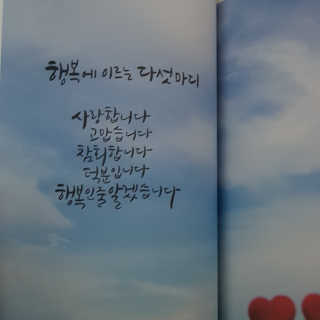 행복에 이르는 다섯마디
사랑합니다
고맙습니다
참회합니다
덕분입니다
행복인줄알겠습니다